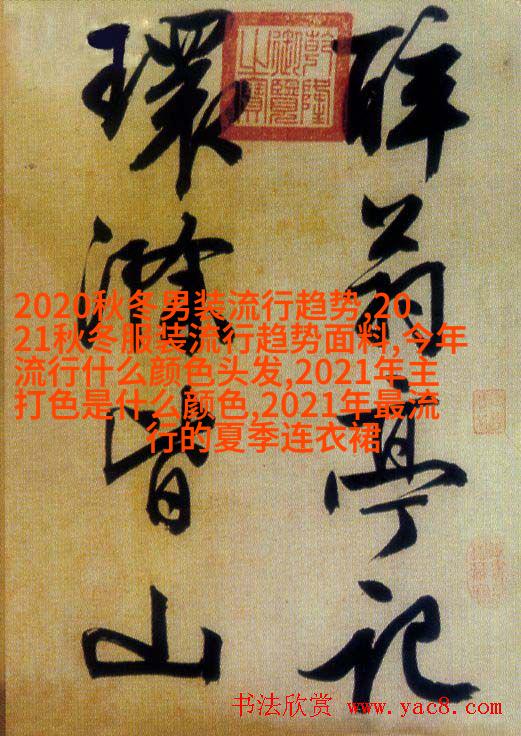 醉翁亭記
環滁皆山
乾隆
御覽
之寶
2020秋冬男装流行趋势,20
21秋冬服装流行趋势面料,今年
流行什么颜色头发,2021年主
打色是什么颜色,2021年最流
行的夏季连衣裙
书法欣赏 www.yac8.com